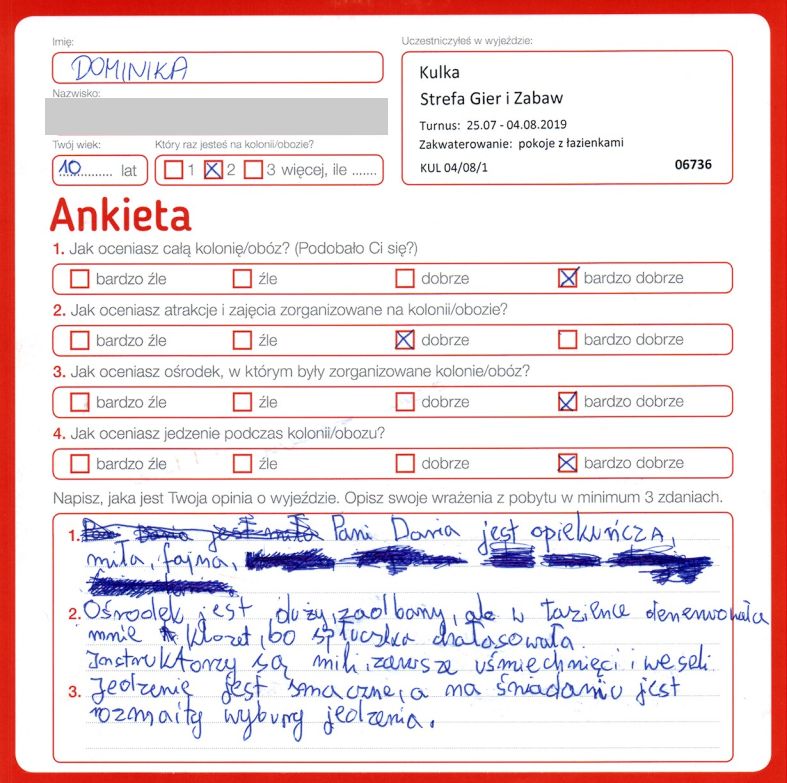 Imię:
DOMINIKA
Nazwisko:
Twój wiek:
10 lat
Który raz jesteś na kolonii/obozie?
1 2 3 więcej, ile .......
Uczestniczyłeś w wyjeździe:
Kulka
Strefa Gier i Zabaw
Turnus: 25.07 - 04.08.2019
Zakwaterowanie: pokoje z łazienkami
KUL 04/08/1 06736
Ankieta
1. Jak oceniasz całą kolonię/obóz? (Podobało Ci się?)
bardzo źle źle dobrze bardzo dobrze
2. Jak oceniasz atrakcje i zajęcia zorganizowane na kolonii/obozie?
bardzo źle źle dobrze bardzo dobrze
3. Jak oceniasz ośrodek, w którym były zorganizowane kolonie/obóz?
bardzo źle źle dobrze bardzo dobrze
4. Jak oceniasz jedzenie podczas kolonii/obozu?
bardzo źle źle dobrze bardzo dobrze
Napisz, jaka jest Twoja opinia o wyjeździe. Opisz swoje wrażenia z pobytu w minimum 3 zdaniach.
1. Pani Daria jest miła Pani Daria jest opiekuńcza,
miła, fajna,
2. Ośrodek jest duży, zadbany, ale w łazience denerwowała
mnie klozet, bo spłuczka hałasowała.
Instruktorzy są mili, zawsze uśmiechnięci i weseli.
3. Jedzenie jest smaczne, a na śniadaniu jest
rozmaity wybury jedzenia.